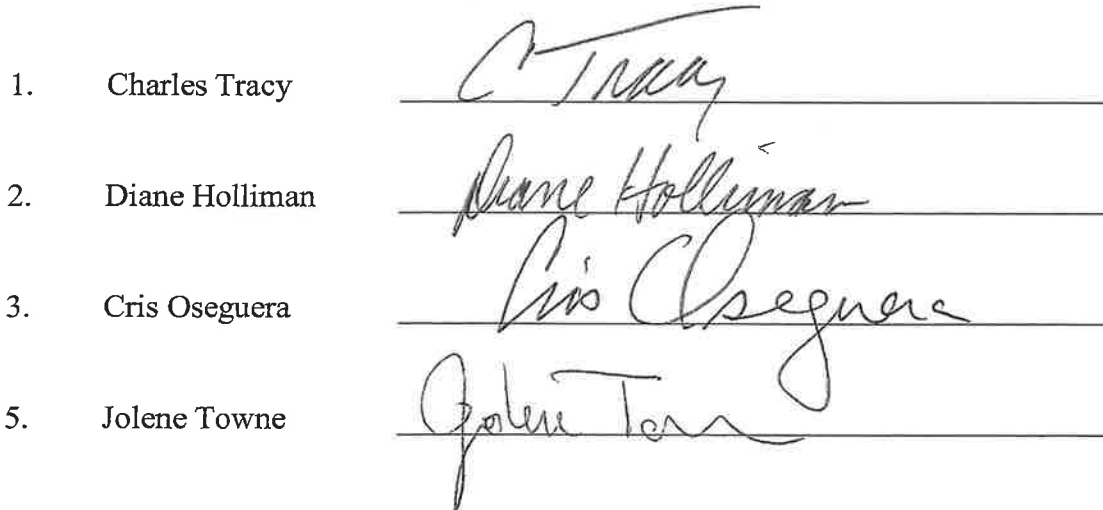 1. Charles Tracy C Tracy
2. Diane Holliman Diane Holliman
3. Cris Oseguera Cris Oseguera
5. Jolene Towne Jolene